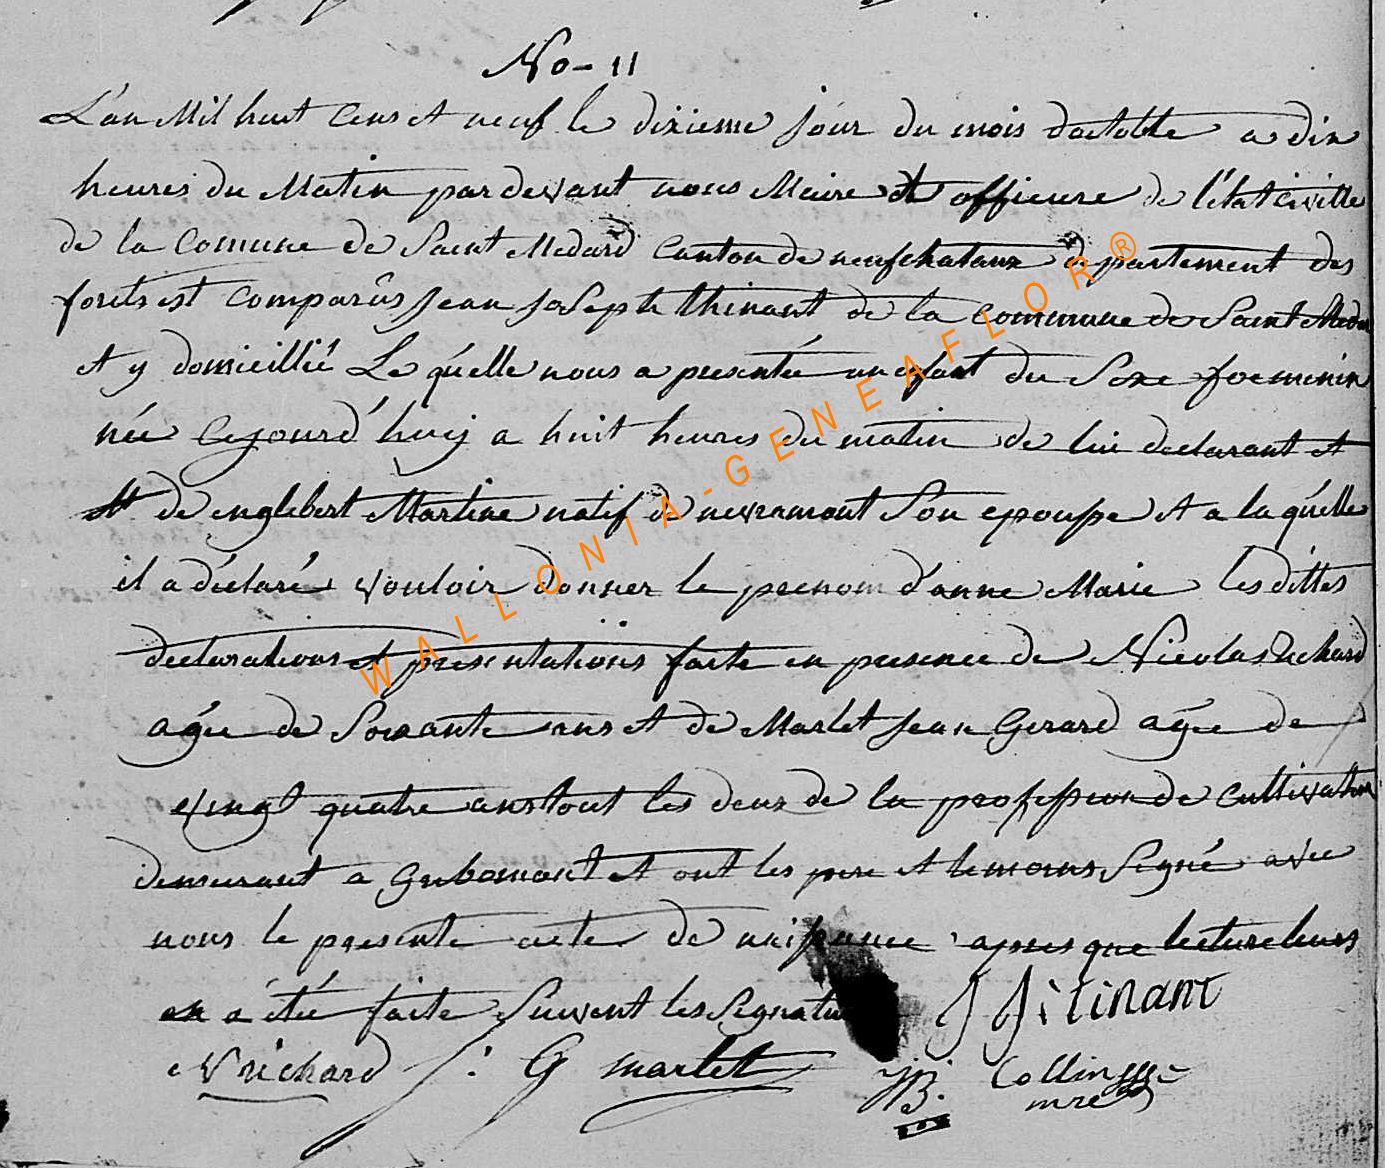 No - 11
L'an Mil huit Cens et neuf le dixieme jour du mois d'octobre a dix
heures du Matin pardevant nous Maire et officiere de l'état civille
de la Comune de Saint Medard Canton de neufchataux departement des
forets est comparûs Jean Joseph thinant de la commune de Saint Meda
et y domicillié Le quélle nous a presentée un enfant du Sexe foeminin
née Cejourd'huy a huit heures du matin de lui declarant et
de englebert Martine natif de nevramont Son epousse et a la quélle
il a déclaré vouloir donner le prenom d'anne Marie les dittes
declarations et présentations faite en presence de Nicolas Richard
agée de Soixante ans et de Marlet Jean Gerard agée de
vingt quatre ans tout les deux de la profession de cultivateur
demeurant a Gribomont et ont les pere et temoins Signé avec
nous le presente acte de naissance apres que lecture leurs
en a étée faite Suivent les Signatu
J J titinant
N richard G marlet JB. Collin
mre
WALLONIA-GENEAFLOR®